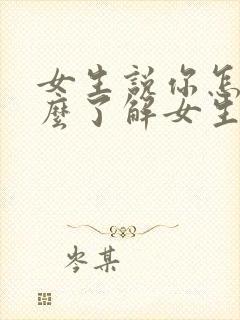 女生說你怎
麼了解女生
岑某